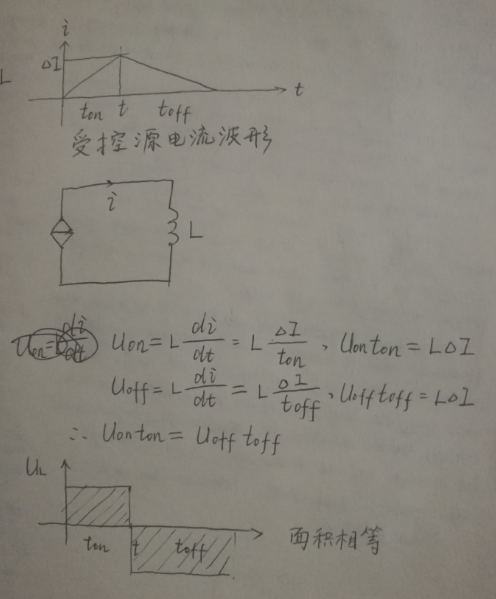 i
L
ΔI
t
ton t toff
受控源电流波形
i
L
Uon = L di/dt = L ΔI/ton , Uon ton = LΔI
Uoff = L di/dt = L ΔI/toff , Uoff toff = LΔI
∴ Uon ton = Uoff toff
UL
ton t toff 面积相等